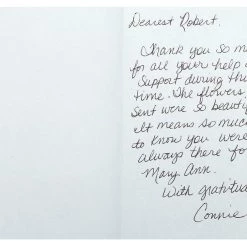 Dearest Robert,
Thank you so m
for all your help a
support during thi
time. The flowers,
sent were so beauti
It means so much
to know you were
always there fo
Mary Ann.
With gratitud
Connie